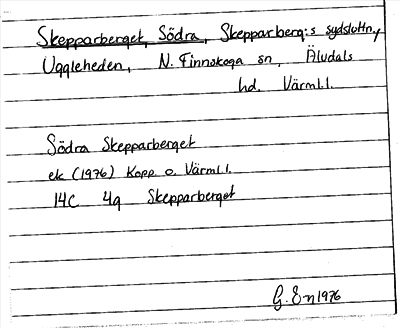 Skepparberget, Södra, Skepparberg:s sydsluttn.,
Uggleheden, N. Finnskoga sn, Äludals
hd. Värml.l.
Södra Skepparberget
ek (1976) Kopp. o. Värml.l.
14C 4g Skepparberget
G. E-n 1976